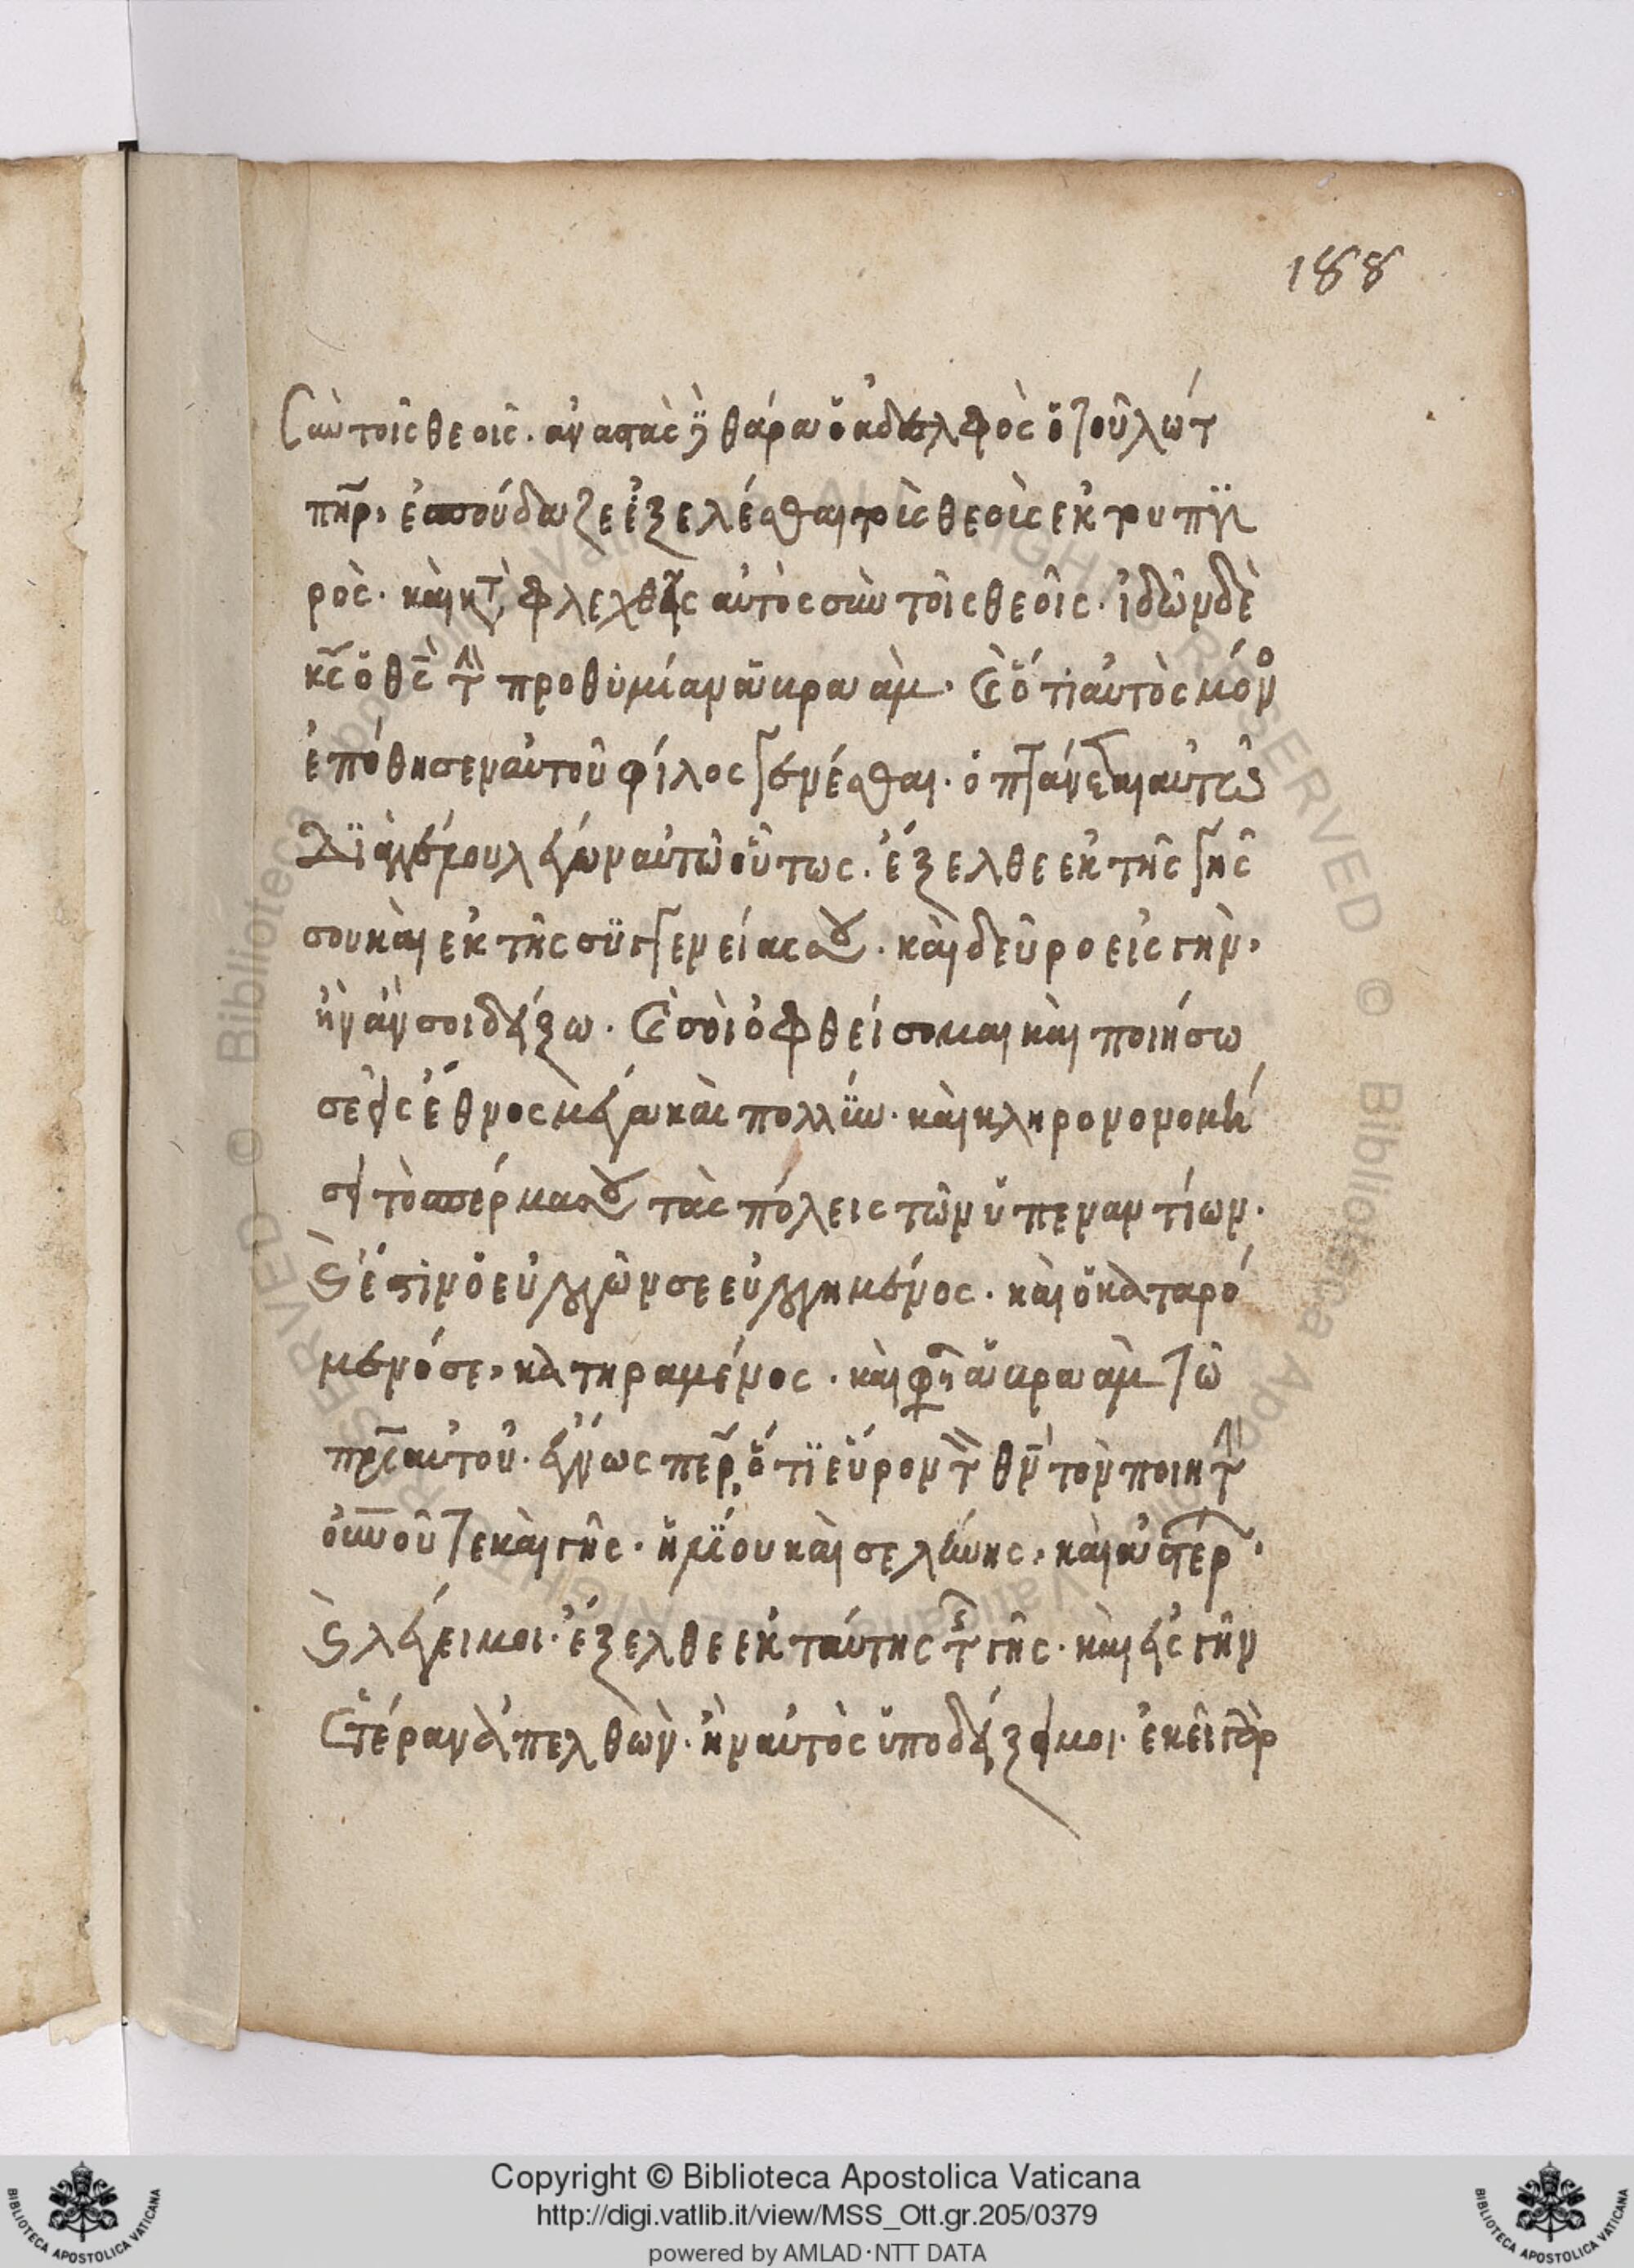 188
σὺν τοῖς θεοῖς. ἀναστὰς δὲ θάρα ὁ ἀδελφὸς ὁ τοῦ λώτ
πηρ, ἐσπούδαζε ἐξελέσθαι τοὶς θεοὶς ἐκ του πϋ
ρός. καὶ κτ φλεχθεὶς αὐτὸς σὺν τοῖς θεοῖς. ἰδὼν δὲ
κς ὁ θς τὴν προθυμίαν ἄβρααμ. καὶ ὅτι αὐτὸς μόν
ἐπόθησεν αὐτοῦ φίλος γενέσθαι.
σου καὶ ἐκ τῆς συγγενείας σου. καὶ δεῦρο εἰς γὴν,
ἣν ἄν σοι δείξω. καὶ σοὶ ὀφθείσομαι καὶ ποιήσω
σε εἰς ἔθνος μέγα καὶ πολλὺν. καὶ κληρονονομή
σει τὸ σπέρμα σου τὰς πόλεις τῶν ὑπεναντίων.
καὶ ἔστιν ὁ εὐλογῶν σε εὐλογημένος. καὶ ὁ καταρό
μενός σε, κατηραμένος. καὶ φη ἄβρααμ τῶ
πρι αὐτοῦ. περ, ὅτι εὗρον τὸν θν τὸν ποιητὴν
οὐνοῦ τε καὶ γῆς. ἡλίου καὶ σελήνης, καὶ ἀστέρ.
καὶ λέγει μοι. ἔξελθε ἐκ ταύτης τῆς γῆς. καὶ εἰς γῆν
ἑτέραν ἀπελθὼν. ἣν αὐτὸς ὑποδείξει μοι. ἐκεῖ γὰρ
Copyright © Biblioteca Apostolica Vaticana
http://digi.vatlib.it/view/MSS_Ott.gr.205/0379
powered by AMLAD·NTT DATA
BIBLIOTECA APOSTOLICA VATICANA
BIBLIOTECA APOSTOLICA VATICANA